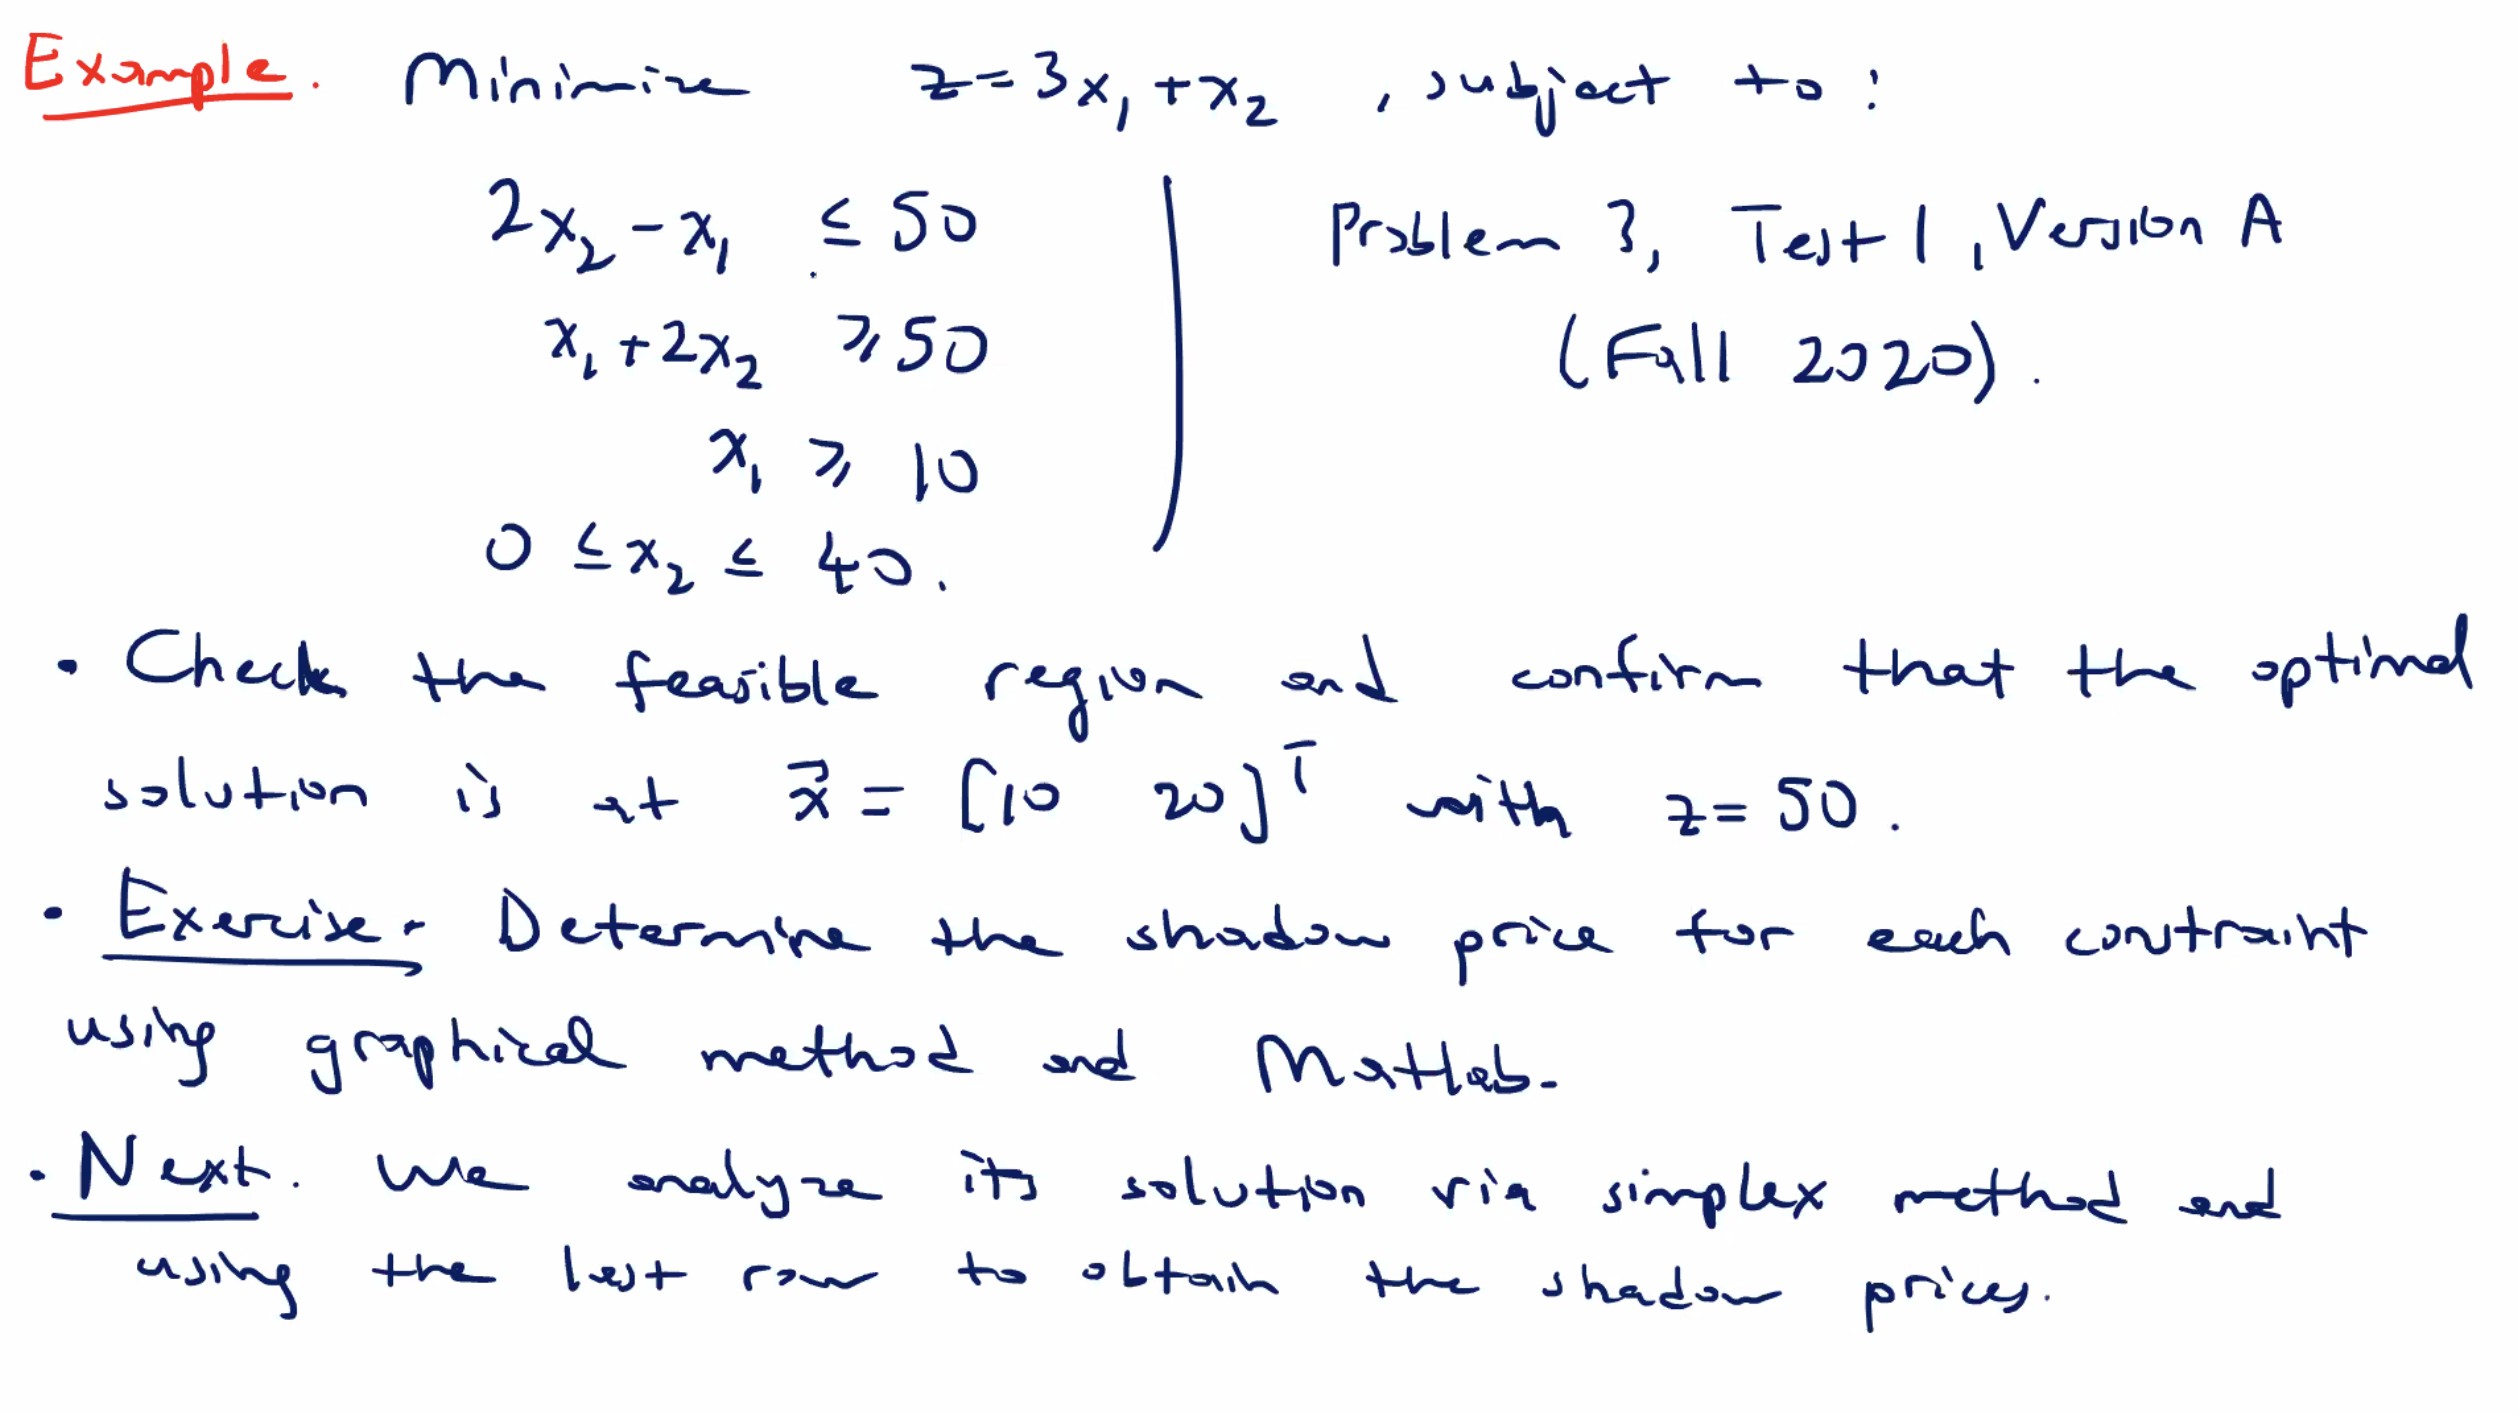 Example. Minimize z=3x₁+x₂, subject to:
2x₂-x₁ ≤ 50
Problem 3, Test 1, Version A
x₁+2x₂ ≥ 50
(Fall 2020).
x₁ ≥ 10
0 ≤ x₂ ≤ 40.
• Check the feasible region and confirm that the optimal
solution is at x⃗ = [10 20]ᵀ with z=50.
• Exercise. Determine the shadow price for each constraint
using graphical method and Matlab.
• Next. We analyze its solution via simplex method and
using the last row to obtain the shadow prices.